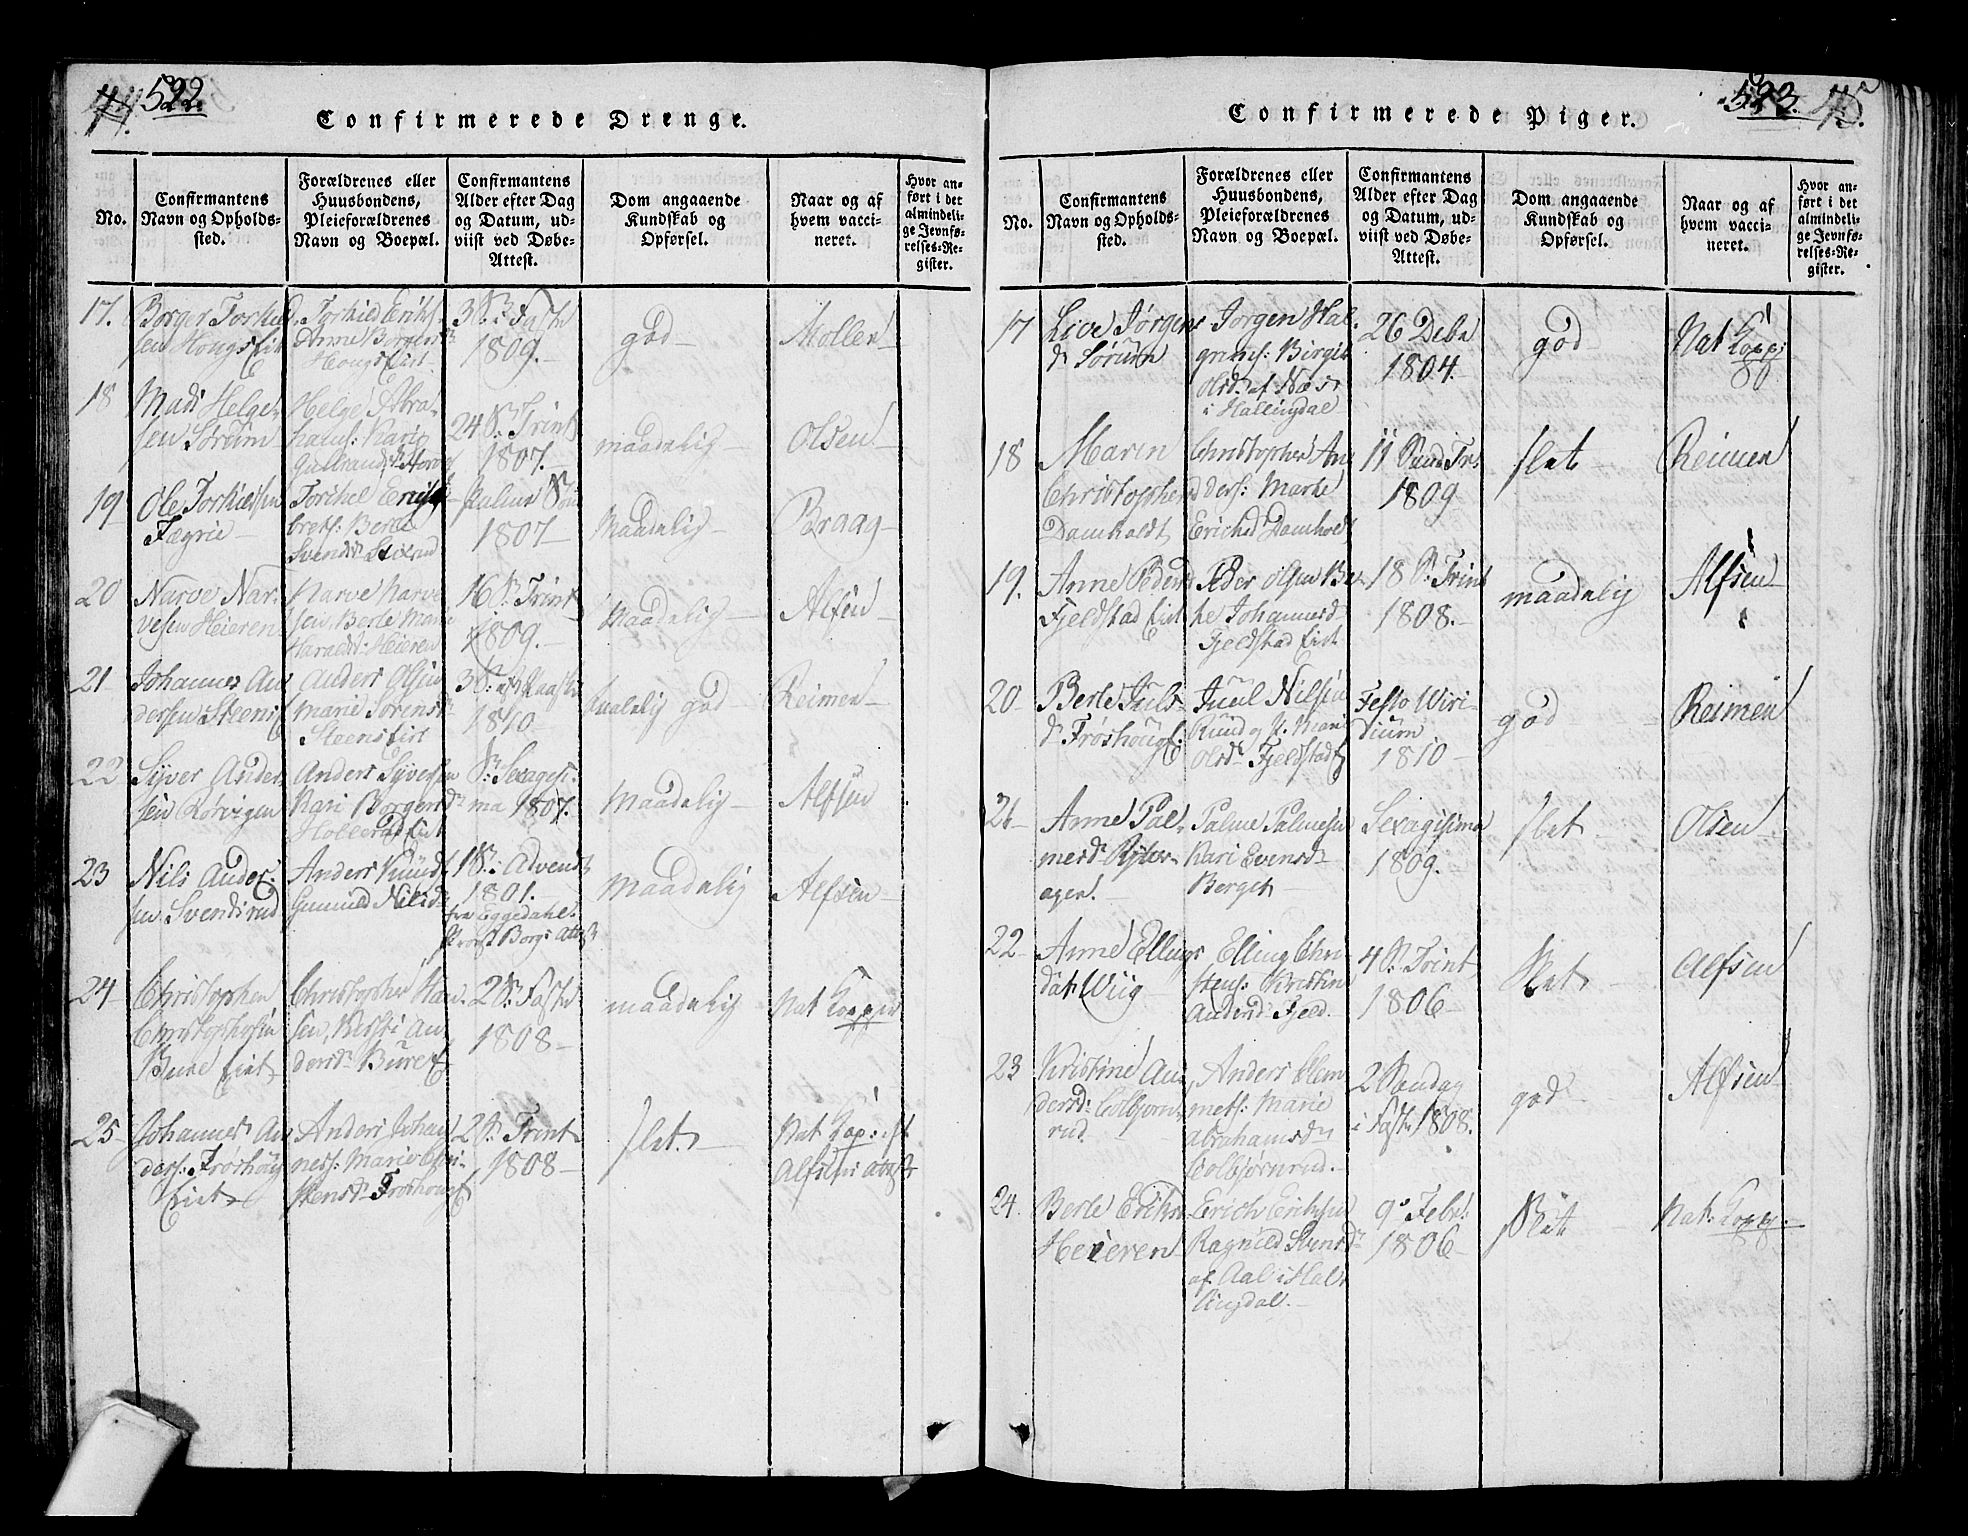 522.
Confirmerede Drenge.
No.
Confirmantens
Navn og Opholds-
sted.
Forældrenes eller
Huusbondens,
Pleieforældrenes
Navn og Boepæl.
Confirmantens
Alder efter Dag
og Datum, ud-
viist ved Døbe-
Attest.
Dom angaaende
Kundskab og
Opførsel.
Naar og af
hvem vacci-
neret.
Hvor an-
ført i det
almindeli-
ge Jevnfø-
relses-Re-
gister.
17.
Borger Torkild
sen Hougs Eit
Torkild Eriks.
Anne Borgersd
Hougs Eiet
3 S. i Faste
1809.
god
Moller
18
Mads Helge-
sen Sørum
Helge Abra-
hams: Kari
24 S. Trint
1807.
maadelig
Olsen
19
Ole Torkildsen
Fægrie
Torkel
brets: Berte
Svendsd
Palme Søn
1807
Maadelig
Braag
20
Narve Nar-
vesen Heieren
Narve Narve
sen, Berte Marie
Haraldsd: Heieren
16 S. Trint
1809.
Maadelig
Alfsen
21
Johannes An
dersen Steens E
Anders Olsen
Marie Sørensd
Steens Eiet
1810
god
Reimen
22
Syver Ander
sen Rørvigen
Anders Syversen
Kari Borgersd
S. Sexagesi-
ma 1807.
Maadelig
Alfsen
23
NilsAnder-
sen Svendsrud
Anders Knuds
Gunnild Nilsd
1 S. i Advent
1801.
fra Eggedahl.
Maadelig
Alfsen
24
Christopher
Christophersen
Bure Eiet
Christopher Han
sen, Kersti An
dersd Bure E
2 S. Faste
1808
maadelig
Nat Kopper
25
Johannes An
ders: Frøshoug
Eiet
Anders Johan
nes: Marie Chri-
stensd Frøshoug E
2 S. Trint
1808
slet
Nat Kop:
Alfsens attest
523.
Confirmerede Piger.
No.
Confirmantens
Navn og Opholds-
sted.
Forældrenes eller
Huusbondens,
Pleieforældrenes
Navn og Boepæl.
Confirmantens
Alder efter Dag
og Datum, ud-
viist ved Døbe-
Attest.
Dom angaaende
Kundskab og
Opførsel.
Naar og af
hvem vacci-
neret.
Hvor an-
ført i det
almindeli-
ge Jevnfø-
relses-Re-
gister.
17
Live Jørgens
d. Sørum
Jørgen Hal-
grims: Birgit
Olsd. af Næs
i Hallingdal
26 Debr
1804.
god
Nat Kopp
18
Maren
Christophersd
Damholdt
Christopher An
ders: Marte
Erichsd Damholdt
11 Sønd Tr:
1809
slet
Reimen
19.
Anne Pedersd
Fjeldstad Eiet
Peder Olsen Ber
the Johannesd
Fjeldstad Eiet
18 S. Trint
1808.
maadelig
Alfsen
20
Berte Juls
d. Frøshoug E.
Juul Nilsen
Olsd. Fjeldstad E
Festo Viri-
dium
1810
god
Reimen
21
Anne Pal-
mesd.
Palme Palmesen
Kari Evensd
Berget
Sexagesima
1809.
slet
Olsen
22
Anne Ellings
dat. Wiig
Elling Chri
stens: Kristin
Andersd Fjeld.
4 S. Trint
1806
Slet
Alfsen
23
Kristine An
dersd: Colbjørns
rud
Anders Clem
mets: Marie
Abrahamsd
Colbjørnrud.
2 Søndag
i Fast 1808.
god
Alfsen
24.
Berte Eriksd
Heieren
Erich Erichsen
Ragnild Svensd
af Aal i Hal-
lingdal.
9 Feb.
1806
Slet
Nat. Kopp.